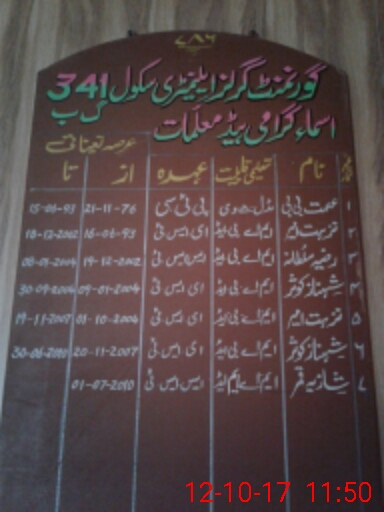 ۷۸۶
گورنمنٹ گرلز ایلیمنٹری سکول 341 گ ب
اسماء گرامی ہیڈ معلمات
عرصہ تعیناتی
نام تعلیمی قابلیت عہدہ از تا
۱ عصمت بی بی مڈل جے وی پی ٹی سی 21-11-76 15-06-93
۲ نزہت امیر ایم اے بی ایڈ ای ایس ٹی 16-06-93 18-12-2002
۳ رضیہ سلطانہ ایم اے بی ایڈ ایس ایس ٹی 19-12-2002 08-01-2004
۴ شہناز کوثر ایم اے بی ایڈ ای ایس ٹی 09-01-2004 30-09-2004
۵ نزہت امیر ایم اے بی ایڈ ای ایس ٹی 01-10-2004 19-11-2007
۶ شہناز کوثر ایم اے بی ایڈ ای ایس ٹی 20-11-2007 30-06-2010
۷ شازیہ قمر ایم اے ایم ایڈ ایس ایس ٹی 01-07-2010
12-10-17 11:50